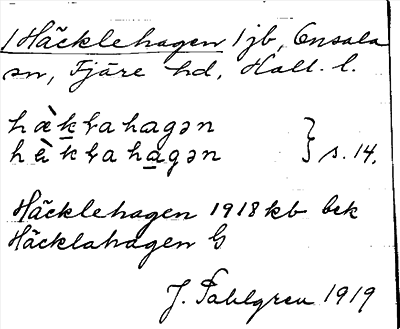 /Häcklehagen/ jb, Onsala
sn, Fjäre hd, Hall. l.
hæ̀kɽahagən
hæ̀kɽahagən } s. 14.
Häcklehagen 1918 kb bek
Häcklahagen G
J. Sahlgren 1919